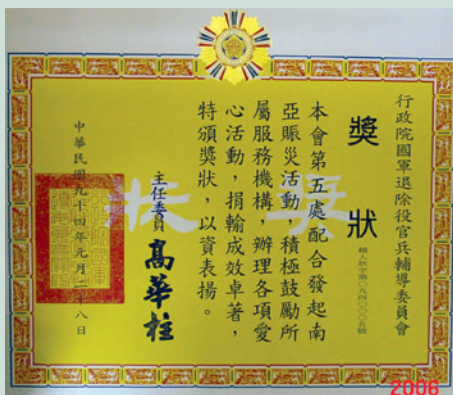 行政院國軍退除役官兵輔導委員會
獎狀
輔人狀字第〇九四〇〇〇五號
本會第五處配合發起南
亞賑災活動，積極鼓勵所
屬服務機構，辦理各項愛
心活動，捐輸成效卓著，
特頒獎狀，以資表揚。
主任委員 高華柱
中華民國九十四年元月二十八日
獎狀
2006